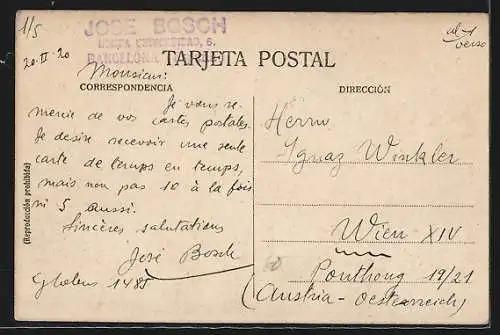 1/5
JOSE BOSCH
BARCELONA
al 1
verso
20.II-20
TARJETA POSTAL
Monsieur:
CORRESPONDENCIA
DIRECCIÓN
Je vous re-
mercie de vos cartes postales.
Je desire recevoir une seule
carte de temps en temps,
mais non pas 10 à la fois
ni 5 aussi.
Sincères salutations
José Bosch
Globus 1485
(Reproducción prohibida)
Herrn
Ignaz Winkler
Wien XIV
19/21
(Austria-Oesterreich)